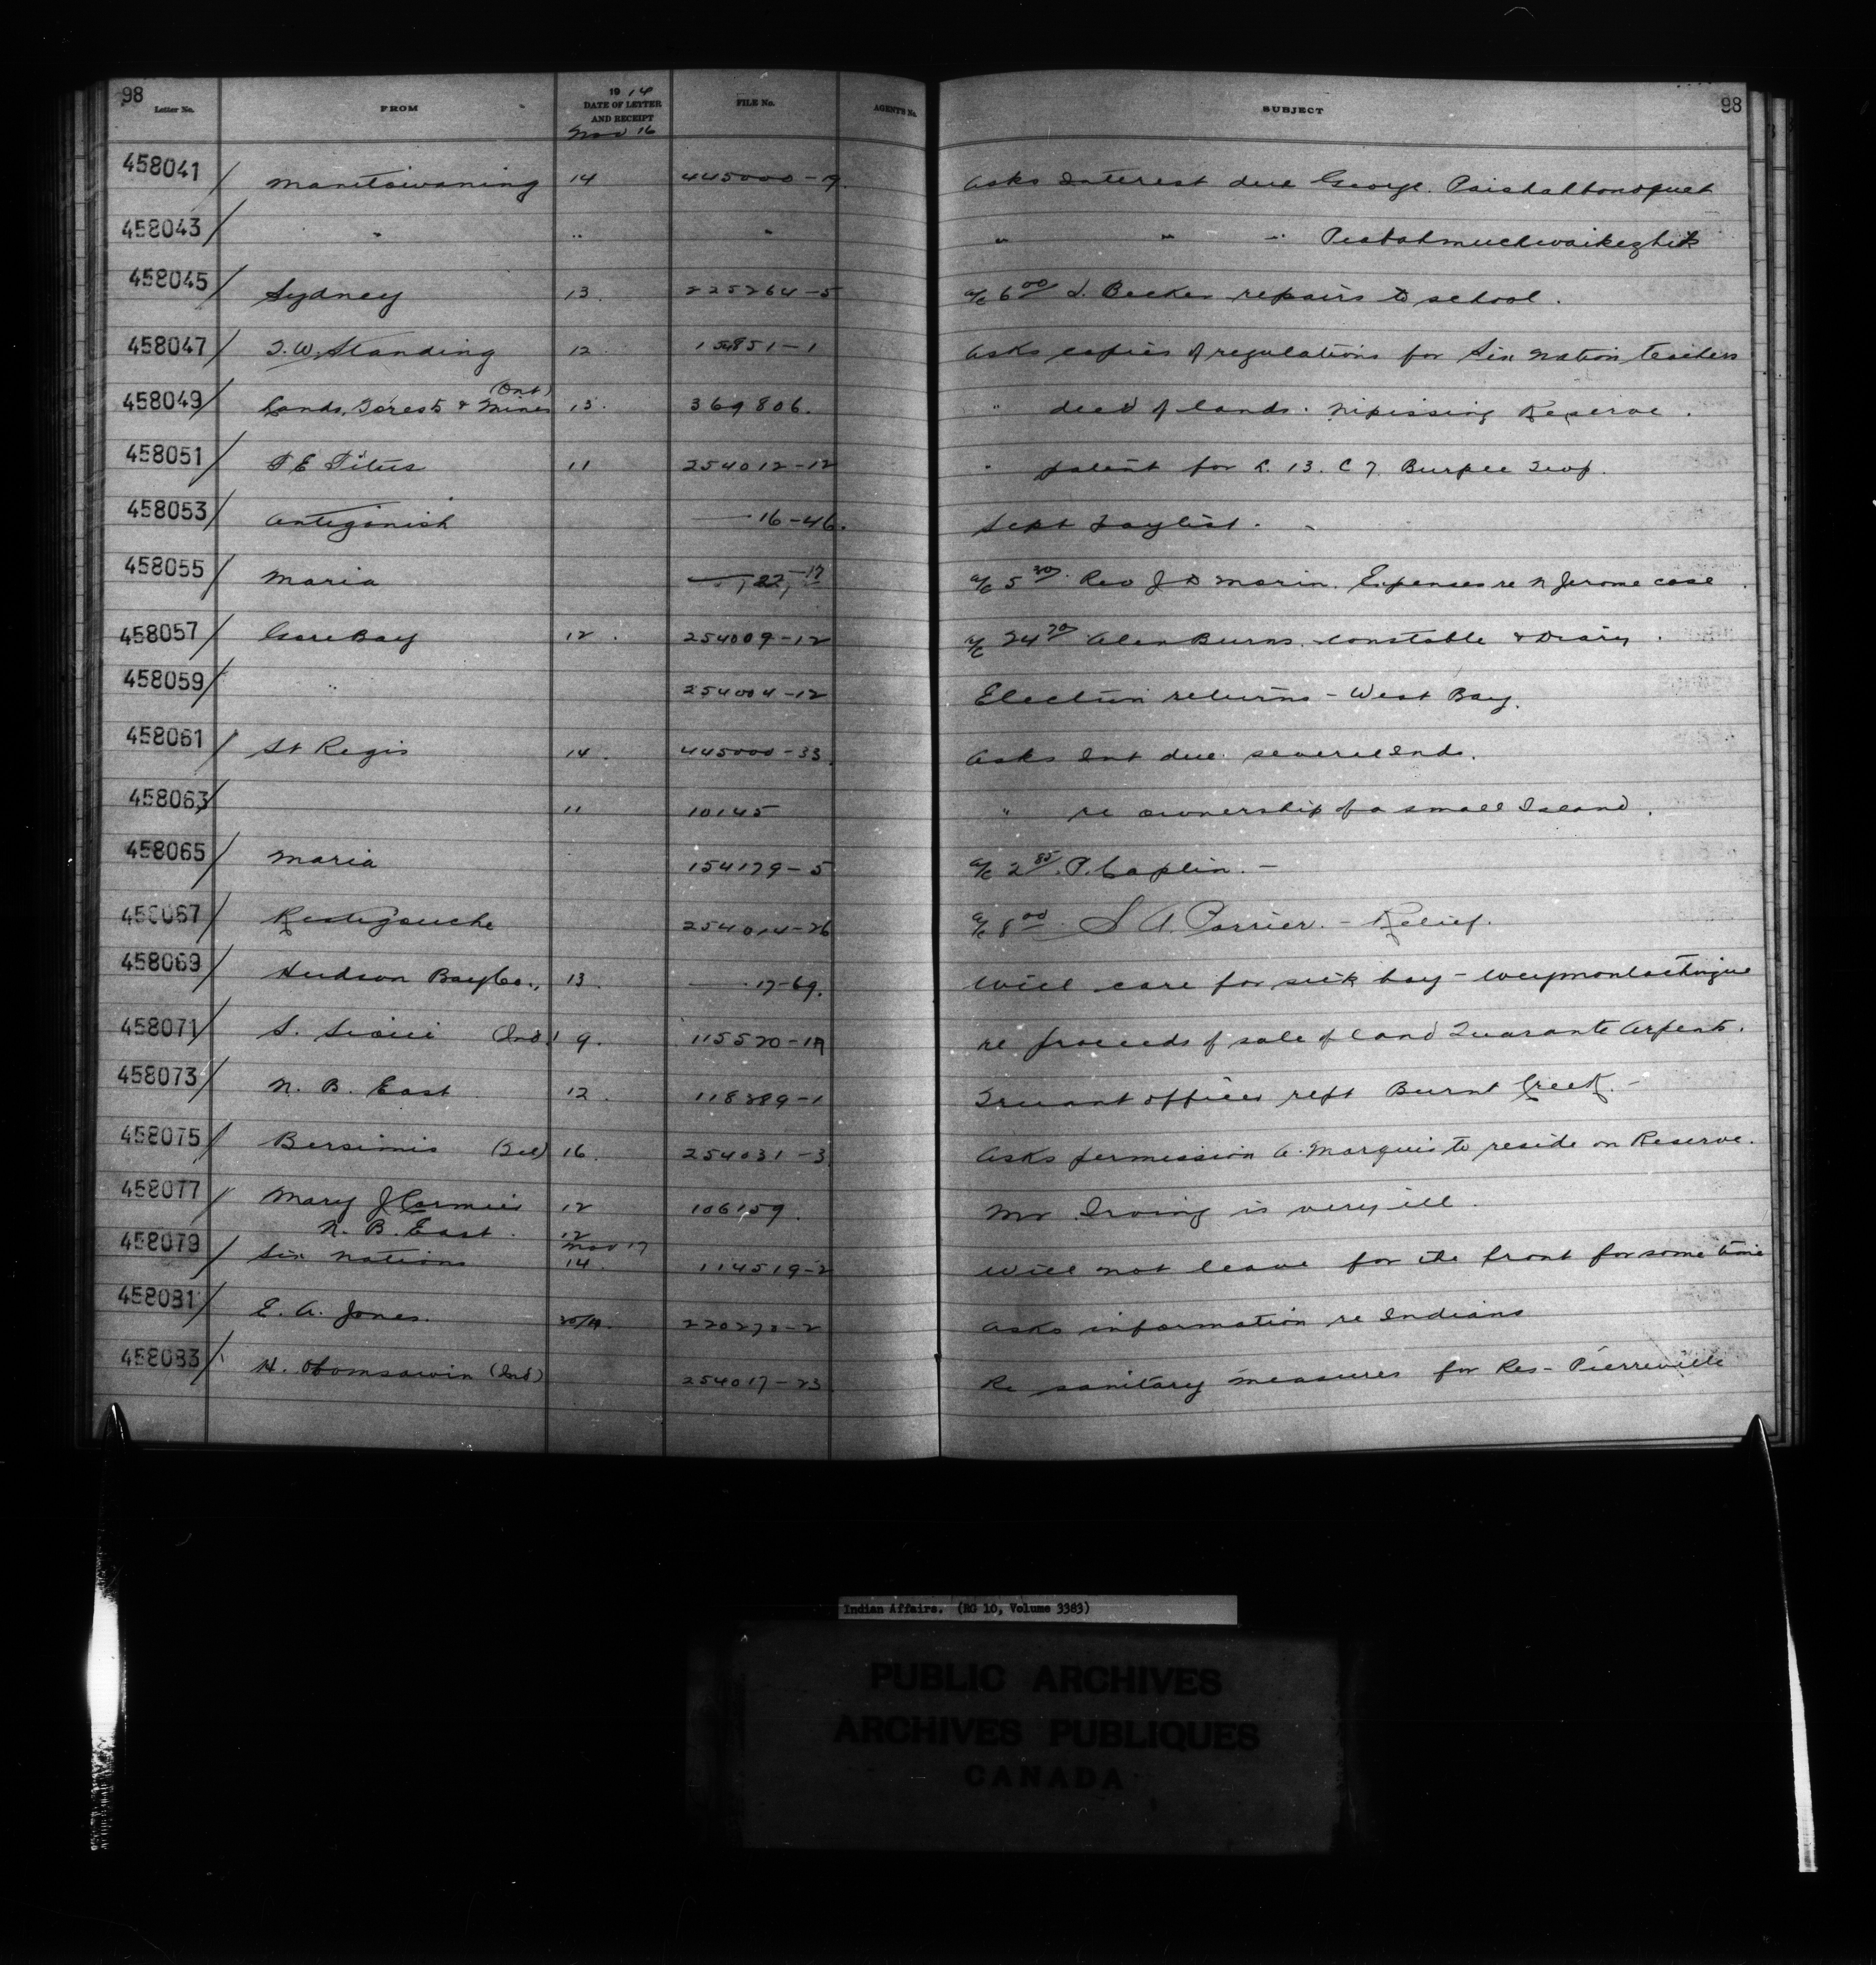 98
Letter No. FROM 1914 DATE OF LETTER AND RECEIPT FILE No. AGENT'S No. SUBJECT 98
Nov 16
458041 Manitowaning 14 445000-19. Asks Interest due George
458043 " " " " " "
458045 Sydney 13. 225264-5 a/c 6 00 Becker repairs to school.
458047 T.W. Standing 12 15851-1 Asks copies of regulations for Six Nation teachers
458049 Lands, Forests & Mines (Ont) 13. 369806. " deed of lands. Nipissing Reserve.
458051 T E Titus 11 254012-12 " patent for L. 13. C 7. Burpee Twp.
458053 Antigonish 16-46. Sept Paylist.
458055 Maria 22, 17 a/c 5 30 Rev J D Morin. Expenses re N Jerome case
458057 Gore Bay 12. 254009-12 a/c 24 70 Alex Burns. Constable & Diary.
458059 " 254004-12 Election returns - West Bay.
458061 St Regis 14. 445000-33 Asks Int due several Inds.
458063 11 10145 " re ownership of a small Island.
458065 Maria 154179-5 a/c 2 85 P. Caplin. -
458067 Restigouche 254014-26 a/c 8 00 S A. Poirier. - Relief.
458069 Hudson Bay Co., 13. 17-69. Will care for sick boy - Weymontachingue
458071 S. Sioui (Ind) 9. 115520-1A re proceeds of sale of land Quarante Arpents.
458073 N. B. East 12. 118389-1 Truant officer rept Burnt Creek. -
458075 Bersimis (Tel) 16. 254031-3 Asks permission A. Marquis to reside on Reserve.
458077 Mary J Cormier 12 106159. Mr Irving is very ill.
N. B. East. 12
458079 Six Nations Nov 17 14. 114519-2 Will not leave for the front for some time
458081 E. A. Jones. 220273-2 Asks information re Indians
458083 H. Obomsawin (Ind) 254017-23 Re sanitary measures for Res - Pierreville
Indian Affairs. (RG 10, Volume 3383)
PUBLIC ARCHIVES
ARCHIVES PUBLIQUES
CANADA